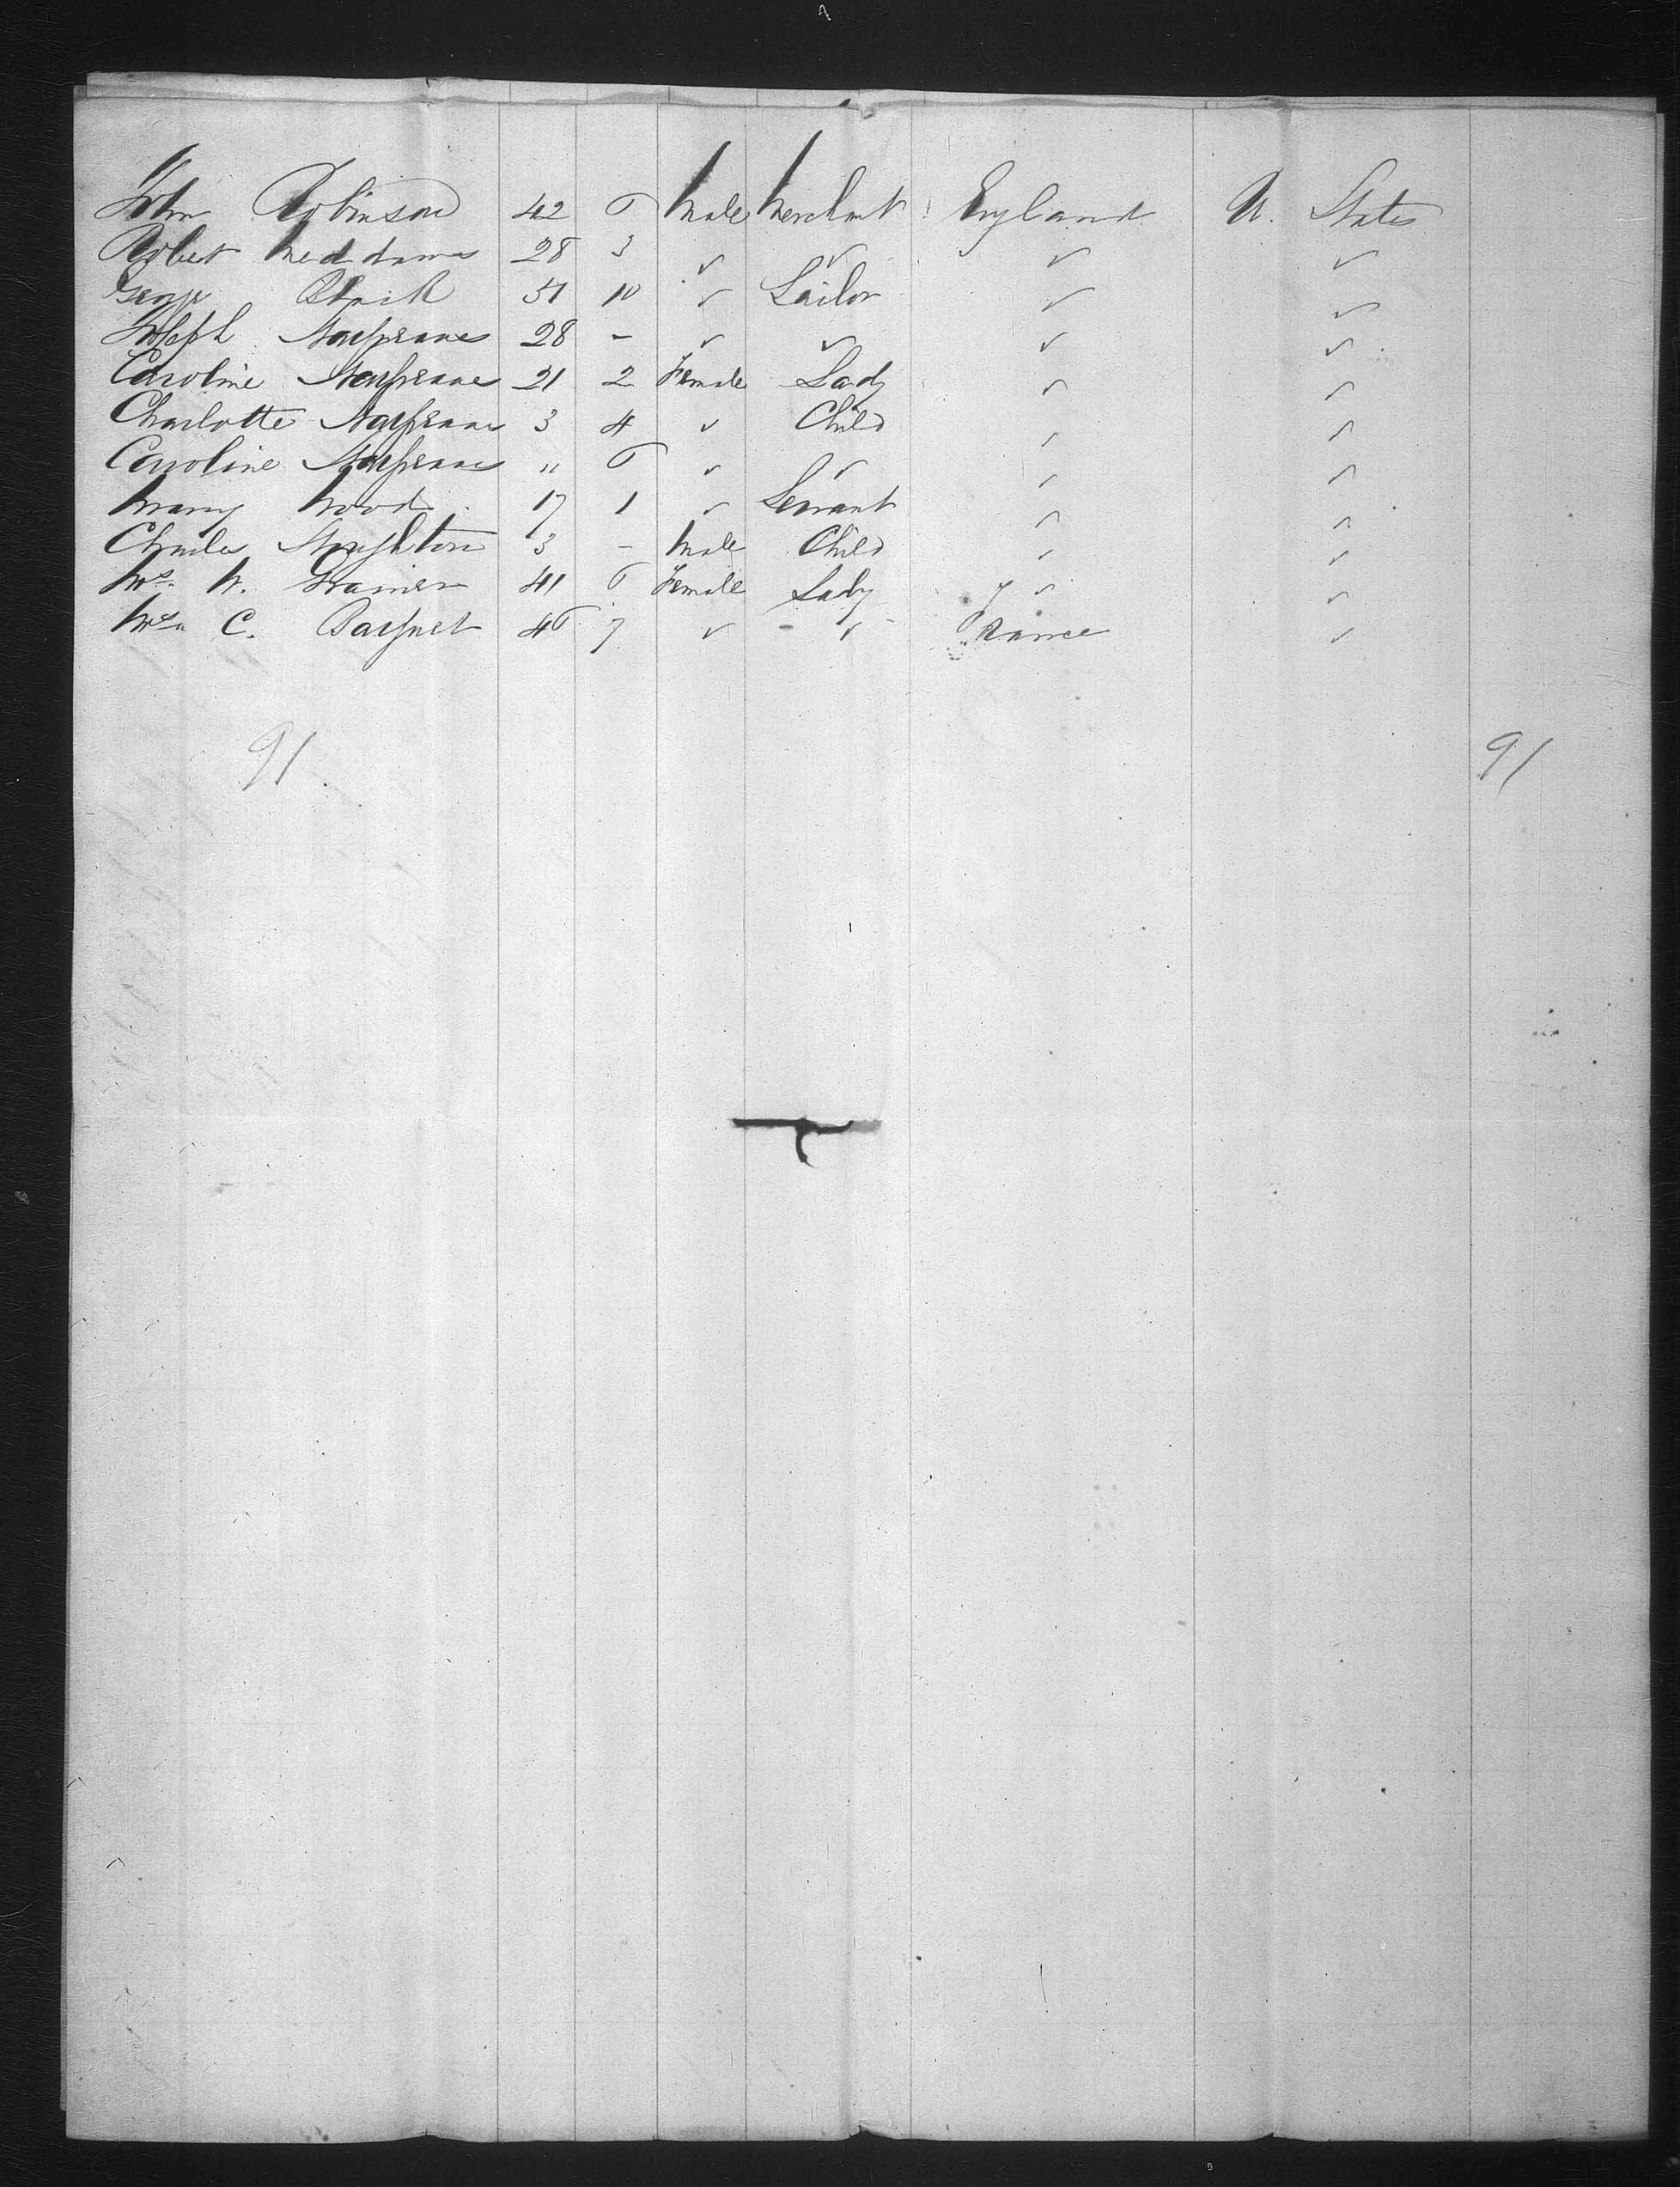 John Robinson 42 6 Male Merchant England U. States
Robert Meddams 28 3 ✓ ✓ ✓ ✓
George 51 10 ✓ Sailor ✓ ✓
Joseph 28 – ✓ ✓ ✓ ✓
Caroline 21 2 Female Lady ✓ ✓
Charlotte 3 4 ✓ Child ✓ ✓
Caroline " 6 ✓ ✓ ✓ ✓
Mary Wood 17 1 ✓ Servant ✓ ✓
Charles 3 – Male Child ✓ ✓
Mrs. 41 6 Female Lady ✓ ✓
Mrs. C. 46 7 ✓ ✓ France ✓
91. 91